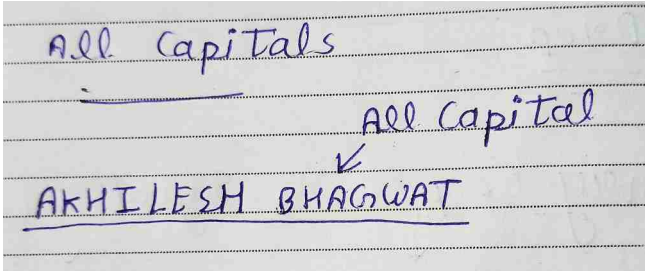 All Capitals
All Capital
AKHILESH BHAGWAT